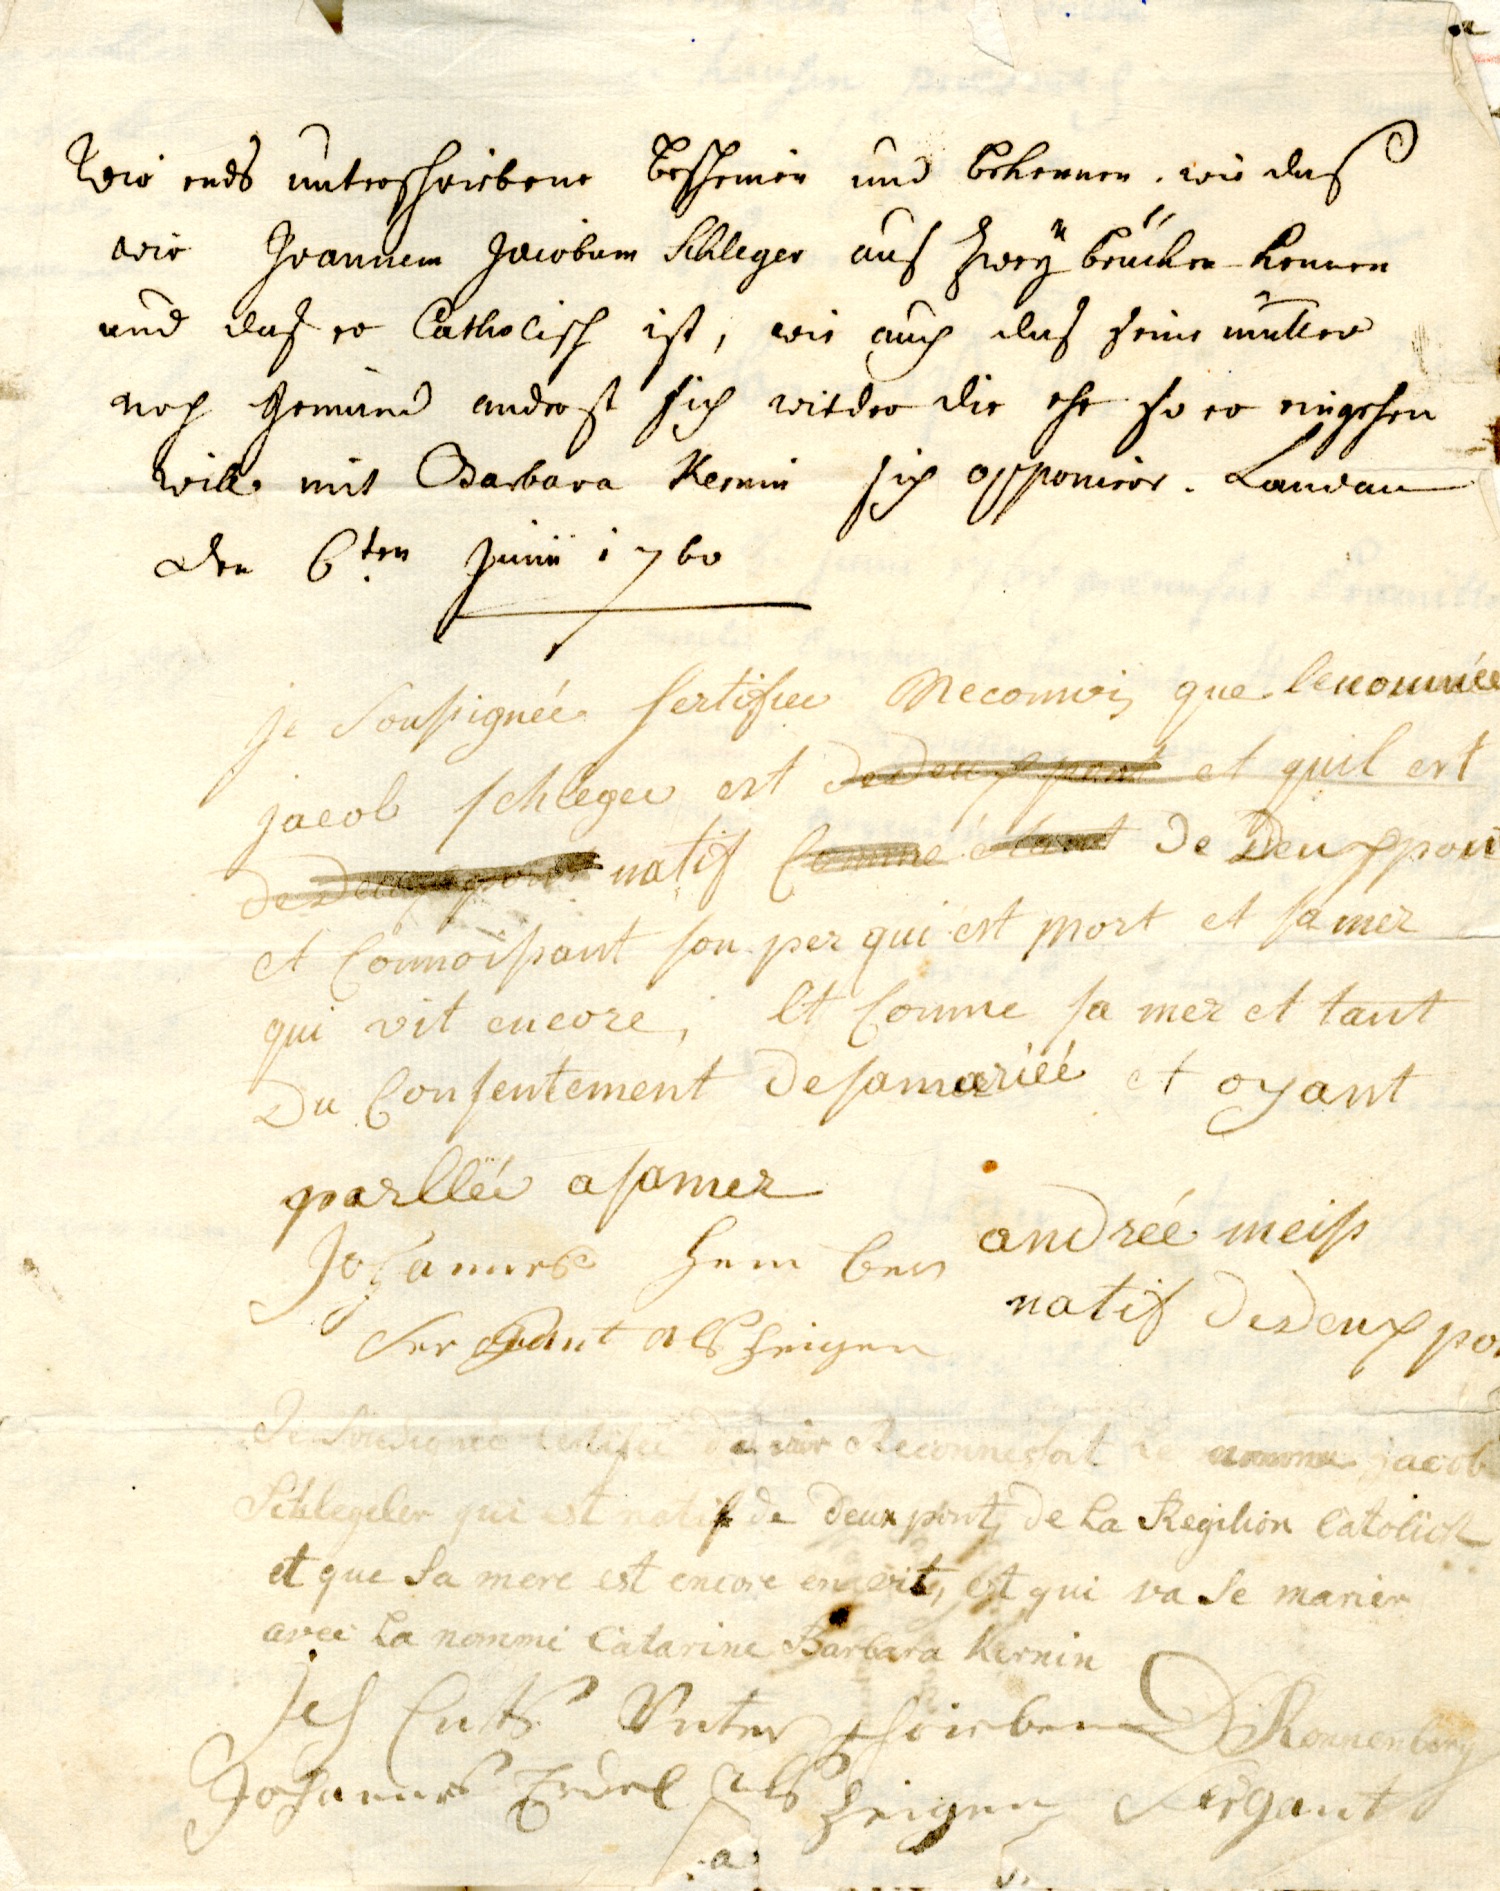 Wir ends unterschriebene bescheinen und bekennen. wie daß
wir Joannem Jacobum Schleger auß Zweÿbrücken kennen
und daß er Catholisch ist, wie auch daß seine mutter
noch Gemand anderst sich wieder die ehe so er eingehen
will mit Barbara Kernin sich opponirer. Landau
den 6ten Junii 1760
je Sousignéé sertifiee Reconnois que lenomméé
jacob schleger est dedeuxpont et quil est
dedeuxpont natif Comme étant de Deuxpont
et Connoissant son per qui est mort et samer
qui vit encore, et Comme sa mer et tant
Du Consentement desamariéé et oyant
parlléé asamer
Johannes
andréé meiss
natif dedeuxpon
Serschant als zeigen
Je Sousigneé certifee d'avoir Reconnessat le nomme jacob
Schlegeler qui est natif de deux pont, de La Regilion Catolick
et que Sa mere est encore en vit, est qui va Se marier
avec La nommé Catarine Barbara Kernin
Ich Ents Unter schrieben
D Ronnenberg
Johannes als Zeigen
Sergant